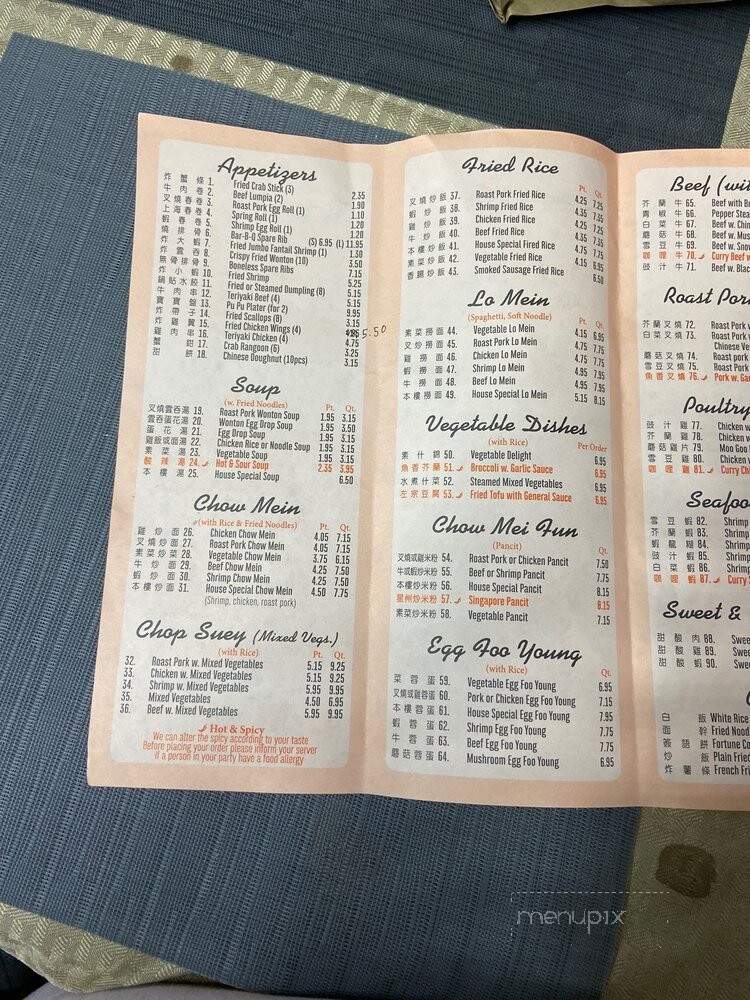 Appetizers
炸蟹條 1. Fried Crab Stick (3) 2.35
牛肉卷 2. Beef Lumpia (2) 1.90
叉燒春卷 3. Roast Pork Egg Roll (1) 1.10
上海春卷 4. Spring Roll (1) 1.20
蝦春卷 5. Shrimp Egg Roll (1) 1.20
燒排骨 6. Bar-B-Q Spare Rib (S) 6.95 (L) 11.95
炸大蝦 7. Fried Jumbo Fantail Shrimp (1) 1.30
炸雲吞 8. Crispy Fried Wonton (10) 3.50
無骨排骨 9. Boneless Spare Ribs 7.15
炸小蝦 10. Fried Shrimp 5.25
鍋貼水餃 11. Fried or Steamed Dumpling (8) 5.15
牛肉串 12. Teriyaki Beef (4) 5.15
寶寶盤 13. Pu Pu Plater (for 2) 9.95
炸帶子 14. Fried Scallops (8) 3.15
炸雞翼 15. Fried Chicken Wings (4) 5.50
雞肉串 16. Teriyaki Chicken (4) 4.75
蟹鉗 17. Crab Rangoon (6) 3.25
甜餅 18. Chinese Doughnut (10pcs) 3.15
Soup
(w. Fried Noodles) Pt. Qt.
叉燒雲吞湯 19. Roast Pork Wonton Soup 1.95 3.15
雲吞蛋花湯 20. Wonton Egg Drop Soup 1.95 3.50
蛋花湯 21. Egg Drop Soup 1.95 3.15
雞飯或面湯 22. Chicken Rice or Noodle Soup 1.95 3.15
素菜湯 23. Vegetable Soup 1.95 3.15
酸辣湯 24. Hot & Sour Soup 2.35 3.95
本樓湯 25. House Special Soup 6.50
Chow Mein
(with Rice & Fried Noodles) Pt. Qt.
雞炒面 26. Chicken Chow Mein 4.05 7.15
叉燒炒面 27. Roast Pork Chow Mein 4.05 7.15
素菜炒菜 28. Vegetable Chow Mein 3.75 6.15
牛炒面 29. Beef Chow Mein 4.25 7.50
蝦炒面 30. Shrimp Chow Mein 4.25 7.50
本樓炒面 31. House Special Chow Mein 4.50 7.75
(Shrimp, chicken, roast pork)
Chop Suey (Mixed Vegs.)
(with Rice) Pt. Qt.
32. Roast Pork w. Mixed Vegetables 5.15 9.25
33. Chicken w. Mixed Vegetables 5.15 9.25
34. Shrimp w. Mixed Vegetables 5.95 9.95
35. Mixed Vegetables 4.50 6.95
36. Beef w. Mixed Vegetables 5.95 9.95
Hot & Spicy
We can alter the spicy according to your taste
Before placing your order please inform your server
if a person in your party have a food allergy
Fried Rice
Pt. Qt.
叉燒炒飯 37. Roast Pork Fried Rice 4.25 7.25
蝦炒飯 38. Shrimp Fried Rice 4.35 7.35
雞炒飯 39. Chicken Fried Rice 4.25 7.25
牛炒飯 40. Beef Fried Rice 4.35 7.35
本樓炒飯 41. House Special Fired Rice 4.75 7.75
素菜炒飯 42. Vegetable Fried Rice 4.15 6.95
香腸炒飯 43. Smoked Sausage Fried Rice 6.50
Lo Mein
(Spaghetti, Soft Noodle) Pt. Qt.
素菜撈面 44. Vegetable Lo Mein 4.15 6.95
叉炒撈面 45. Roast Pork Lo Mein 4.75 7.75
雞撈面 46. Chicken Lo Mein 4.75 7.75
蝦撈面 47. Shrimp Lo Mein 4.95 7.95
牛撈面 48. Beef Lo Mein 4.95 7.95
本樓撈面 49. House Special Lo Mein 5.15 8.15
Vegetable Dishes
(with Rice) Per Order
素什錦 50. Vegetable Delight 6.95
魚香芥蘭 51. Broccoli w. Garlic Sauce 6.95
水煮什菜 52. Steamed Mixed Vegetables 6.95
左宗豆腐 53. Fried Tofu with General Sauce 6.95
Chow Mei Fun
(Pancit) Qt.
叉燒或雞米粉 54. Roast Pork or Chicken Pancit 7.50
牛或蝦炒米粉 55. Beef or Shrimp Pancit 7.75
本樓炒米粉 56. House Special Pancit 8.15
星州炒米粉 57. Singapore Pancit 8.15
素菜炒米粉 58. Vegetable Pancit 7.15
Egg Foo Young
(with Rice) Qt.
菜蓉蛋 59. Vegetable Egg Foo Young 6.95
叉燒或雞蓉蛋 60. Pork or Chicken Egg Foo Young 7.15
本樓蓉蛋 61. House Special Egg Foo Young 7.95
蝦蓉蛋 62. Shrimp Egg Foo Young 7.75
牛蓉蛋 63. Beef Egg Foo Young 7.75
蘑菇蓉蛋 64. Mushroom Egg Foo Young 6.95
Beef (wit
芥蘭牛 65. Beef with B
青椒牛 66. Pepper Stea
白菜牛 67. Beef w. Chin
蘑菇牛 68. Beef w. Mus
雪豆牛 69. Beef w. Snow
咖喱牛 70. Curry Beef w
豉汁牛 71. Beef w. Blac
Roast Por
芥蘭叉燒 72. Roast Pork
白菜叉燒 73. Roast Pork w
Chinese Ve
蘑菇叉燒 74. Roast Pork
雪豆叉燒 75. Roast Pork
魚香叉燒 76. Pork w. Ga
Poultry
豉汁雞 77. Chicken w
芥蘭雞 78. Chicken w
蘑菇雞片 79. Moo Goo
雪豆雞 80. Chicken w
咖喱雞 81. Curry Chi
Seafoo
雪豆蝦 82. Shrimp
芥蘭蝦 83. Shrimp
蝦龍糊 84. Shrimp
豉汁蝦 85. Shrimp
白菜蝦 86. Shrimp
咖喱蝦 87. Curry
Sweet &
甜酸肉 88. Swee
甜酸雞 89. Swee
甜酸蝦 90. Swee
白飯 White Rice
面幹 Fried Nood
簽語餅 Fortune Co
炒飯 Plain Fried
炸薯條 French Fri
menupix